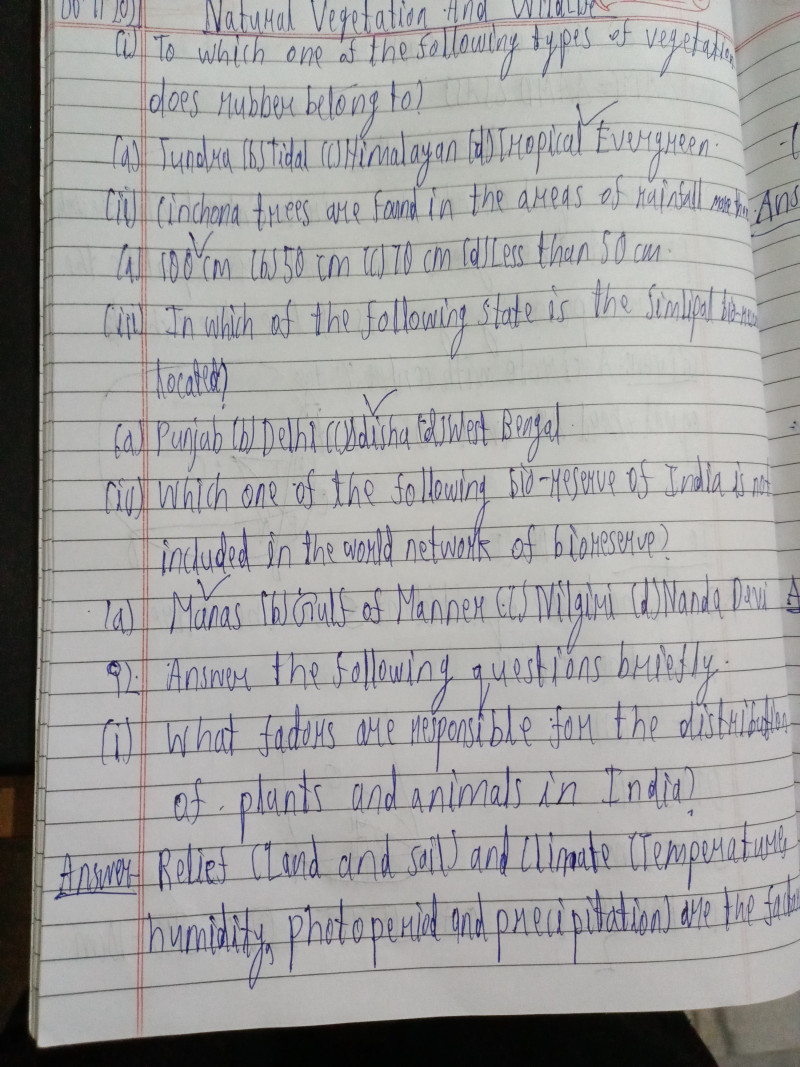 Natural Vegetation And Wildlife
(i) To which one of the following types of vegetation
does rubber belong to?
(a) Tundra (b) Tidal (c) Himalayan (d) Tropical Evergreen.
(ii) Cinchona trees are found in the areas of rainfall more than
(a) 100 cm (b) 50 cm (c) 70 cm (d) Less than 50 cm.
(iii) In which of the following state is the Simlipal bio-reserve
located?
(a) Punjab (b) Delhi (c) Odisha (d) West Bengal.
(iv) Which one of the following bio-reserve of India is not
included in the world network of bioreserve?
(a) Manas (b) Gulf of Manner (c) Nilgiri (d) Nanda Devi
Q2. Answer the following questions briefly.
(i) What factors are responsible for the distribution
of plants and animals in India?
Answer Relief (Land and soil) and Climate (Temperature,
humidity, photoperiod and precipitation) are the factors
Ans